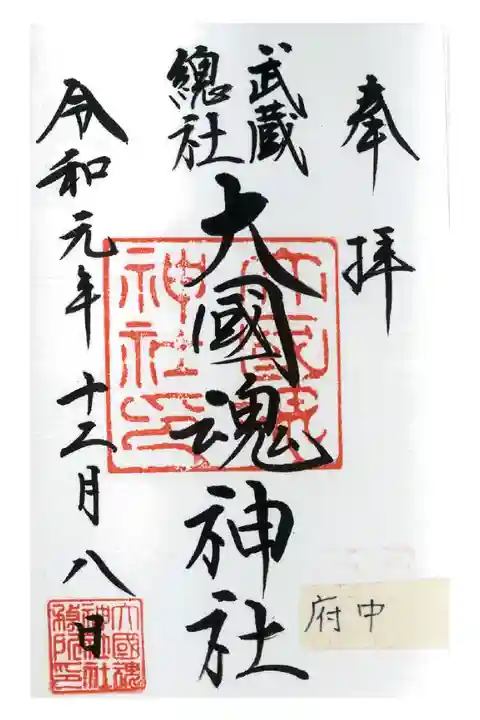 奉拝
武蔵
總社
大國魂神社
大國魂
神社印
令和元年十二月八日
大國魂
神社
府中